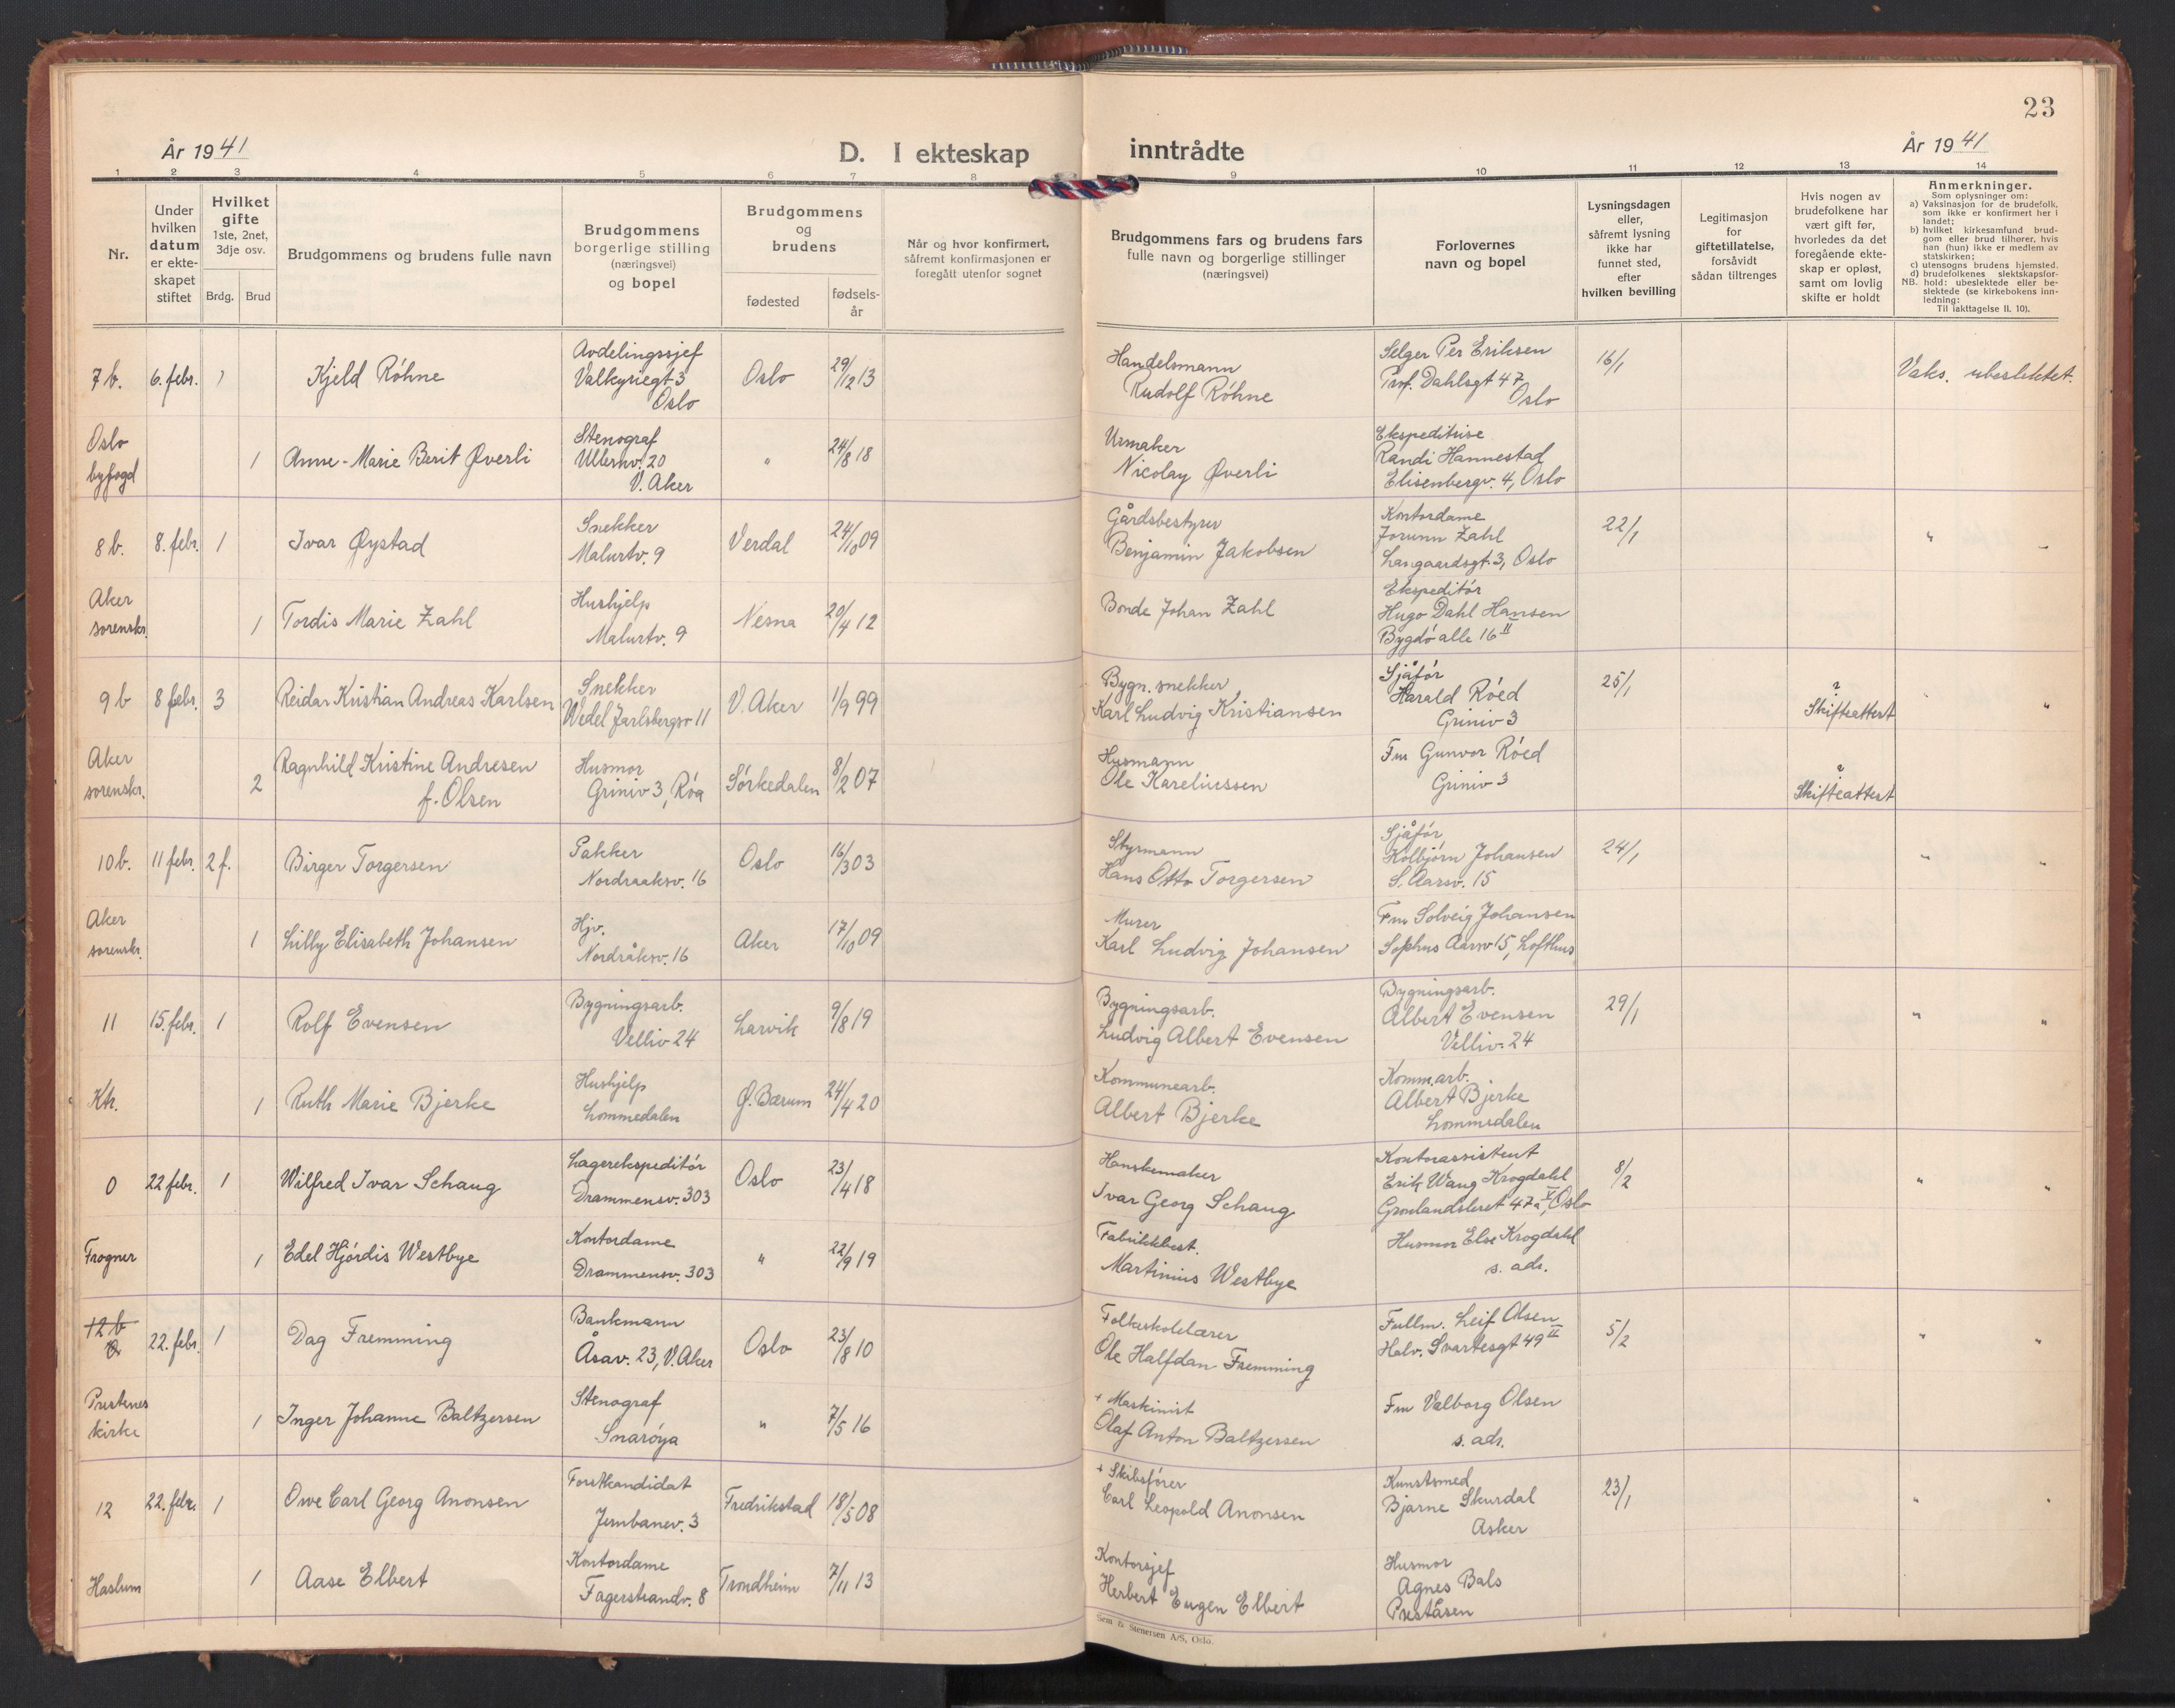 23
År 1941
D. I ekteskap inntrådte
År 1941
1 2 3 4 5 6 7 8 9 10 11 12 13 14
Nr.
Under hvilken datum er ekteskapet stiftet
Hvilket gifte 1ste, 2net, 3dje osv.
Brdg. Brud
Brudgommens og brudens fulle navn
Brudgommens borgerlige stilling (næringsvei) og bopel
Brudgommens og brudens
fødested
fødselsår
Når og hvor konfirmert, såfremt konfirmasjonen er foregått utenfor sognet
Brudgommens fars og brudens fars fulle navn og borgerlige stillinger (næringsvei)
Forlovernes navn og bopel
Lysningsdagen eller, såfremt lysning ikke har funnet sted, efter hvilken bevilling
Legitimasjon for giftetillatelse, forsåvidt sådan tiltrenges
Hvis nogen av brudefolkene har vært gift før, hvorledes da det foregående ekteskap er opløst, samt om lovlig skifte er holdt
Anmerkninger.
Som oplysninger om:
a) Vaksinasjon for de brudefolk, som ikke er konfirmert her i landet;
b) hvilket kirkesamfund brudgom eller brud tilhører, hvis han (hun) ikke er medlem av statskirken;
c) utensogns brudens hjemsted.
d) brudefolkenes slektskapsforhold: ubeslektede eller beslektede (se kirkebokens innledning:
NB.
Til iakttagelse II. 10).
7 b. 6. febr. 1 Kjeld Röhne Avdelingssjef Valkyriegt 3 Oslo Oslo 29/12 13 Handelsmann Rudolf Röhne Selger Per Eriksen Prof. Dahlsgt 47 Oslo 16/1 Vaks. ubeslektet.
Oslo byfogd 1 Anne-Marie Berit Øverli Stenograf Ullernv. 20 V. Aker " 24/8 18 Urmaker Nicolay Øverli Ekspeditrise Randi Hannestad Elisenbergv. 4, Oslo
8 b. 8. febr. 1 Ivar Øystad Snekker Malurtv. 9 Verdal 24/10 09 Gårdsbestyrer Benjamin Jakobsen Kontordame Jorunn Zahl Langaardsgt. 3, Oslo 22/1 " "
Aker sorenskr. 1 Tordis Marie Zahl Hushjelp Malurtv. 9 Nesna 20/4 12 Bonde Johan Zahl Ekspeditör Hugo Dahl Hansen Bygdö alle 16 II
9 b 8 febr. 3 Reidar Kristian Andreas Karlsen Snekker Wedel Jarlsbergsv 11 V. Aker 1/9 99 Bygn. snekker Karl Ludvig Kristiansen Sjåför Harald Röed Griniv 3 25/1 Skifteattest " "
Aker sorenskr. 2 Ragnhild Kristine Andresen f. Olsen Husmor Griniv 3, Röa Sörkedalen 8/2 07 Husmann Ole Kareliussen Fru Gunvor Röed Griniv 3 Skifteattest
10 b. 11 febr. 2 f. Birger Torgersen Pakker Nordraaksv. 16 Oslo 16/3 03 Styrmann Hans Otto Torgersen Sjåför Kolbjörn Johansen S. Aarsv. 15 24/1 " "
Aker sorenskr. 1 Lilly Elisabeth Johansen Hjv. Nordråksv. 16 Aker 17/10 09 Murer Karl Ludvig Johansen Fru Solveig Johansen Sophus Aarsv 15, Lofthus
11 15. febr. 1 Rolf Evensen Bygningsarb. Velliv 24 Larvik 9/8 19 Bygningsarb. Ludvig Albert Evensen Bygningsarb. Albert Evensen Velliv. 24 29/1 " "
Kth. 1 Ruth Marie Bjerke Hushjelp Lommedalen Ø. Bærum 24/4 20 Kommunearb. Albert Bjerke Komm.arb. Albert Bjerke Lommedalen
0 22 febr. 1 Wilfred Ivar Schaug Lagerekspeditör Drammensv. 303 Oslo 23/4 18 Hanskemaker Ivar Georg Schaug Kontorassistent Erik Wang Krogdahl Grønlandsleret 47a V, Oslo 8/2 " "
Frogner 1 Edel Hjördis Westbye Kontordame Drammensv. 303 " 22/9 19 Fabrikkbest. Martinius Westbye Husmor Else Krogdahl s. adr.
12 b 0 22. febr. 1 Dag Fremming Bankmann Åsav. 23, V. Aker Oslo 23/8 10 Folkeskolelærer Ole Halfdan Fremming Fullm. Leif Olsen Halv. Svartesgt 49 II 5/2 " "
Prestenes kirke 1 Inger Johanne Baltzersen Stenograf Snaröya " 7/5 16 + Maskinist Olaf Anton Baltzersen Fru Valborg Olsen s. adr.
12 22. febr. 1 Owe Carl Georg Anonsen Forstkandidat Jernbanev. 3 Fredrikstad 18/5 08 + Skibsförer Carl Leopold Anonsen Kunstsmed Bjarne Skurdal Asker 23/1 " "
Haslum 1 Aase Elbert Kontordame Fagerstrandv. 8 Trondheim 7/11 13 Kontorsjef Herbert Eugen Elbert Husmor Agnes Bals Preståsen
Sem & Stenersen A/S, Oslo.